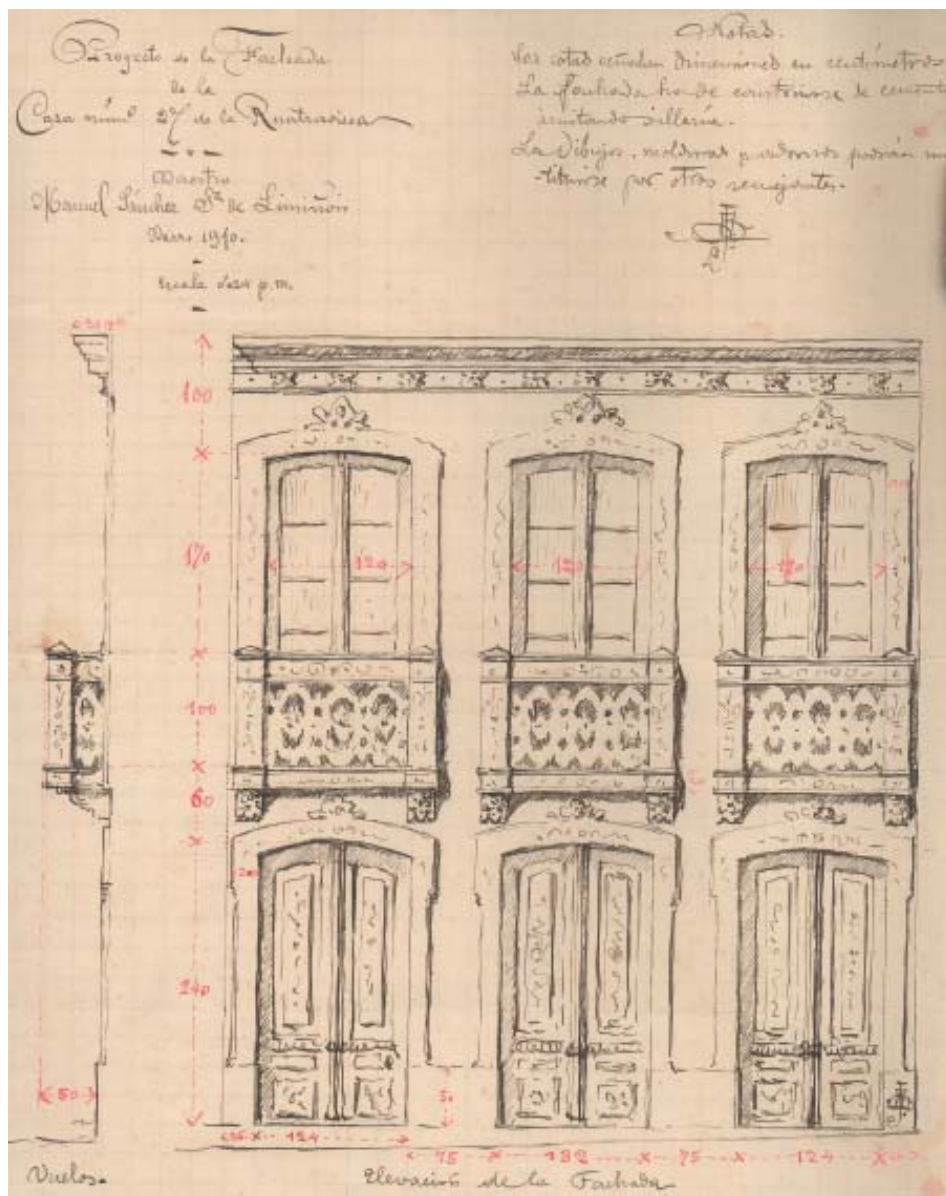 Proyecto de la Fachada
de la
Casa núm.º 27 de la Ruatraviesa
Maestro
Manuel Sánchez de
1910.
Escala p.m.
Notas.
Las cotas señalan dimensiones en centímetros
La fachada ha de construirse de cemento
imitando sillería.
Los dibujos, molduras y adornos podrán
-tituirse por otros semejantes.
100
170
120
120
120
100
60
240
50
50
124
75 132 75 124
Vuelos.
Elevación de la Fachada